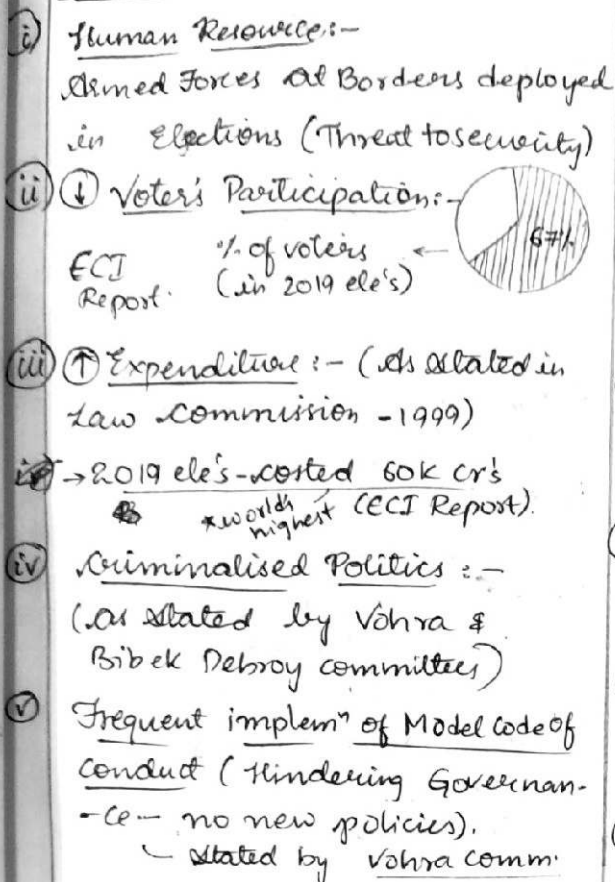 i) Human Resource:-
Armed Forces at Borders deployed
in Elections (Threat to security)
ii) ↓ Voter's Participation:-
67%
% of voters ←
ECI
(in 2019 ele's)
Report.
iii) ↑ Expenditure :- (As stated in
Law Commission - 1999)
→ 2019 ele's - costed 60K Cr's
*world's highest (ECI Report).
iv) Criminalised Politics :-
(As stated by Vohra &
Bibek Debroy committees)
v) Frequent implemⁿ of Model Code of
Conduct (Hindering Governan-
-ce - no new policies).
stated by Vohra comm.